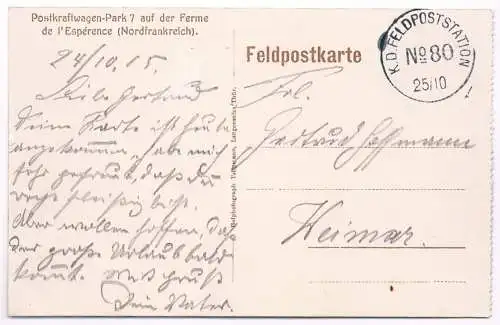 Postkraftwagen-Park 7 auf der Ferme
de l'Espérence (Nordfrankreich).
24/10.15.
Liebe Gertrud
Deine Karte ist heute
angekommen, hab mich
sehr gefreut, daß Du
recht fleißig bist.
Aber wollen hoffen, daß
der große Urlaub bald
kommt. Mit Gruß
Dein Vater.
Feldpostkarte
K.D. FELDPOSTSTATION
No 80
25/10
Frl.
Gertrud Hoffmann
Weimar.